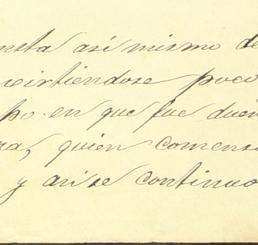 nsta así mismo de
virtiendose poco
ho en que fue due
za, quien comens
y asi se continuo